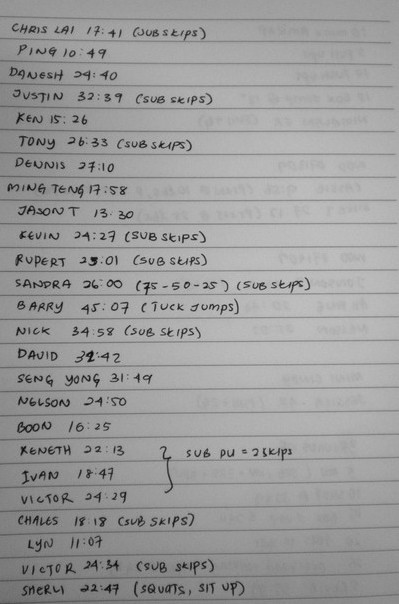 CHRIS LAI 17:41 (SUB SKIPS)
PING 10:49
DANESH 24:40
JUSTIN 32:39 (SUB SKIPS)
KEN 15:26
TONY 26:33 (SUB SKIPS)
DENNIS 27:10
MING TENG 17:58
JASON T 13:30
KEVIN 24:27 (SUB SKIPS)
RUPERT 25:01 (SUB SKIPS)
SANDRA 26:00 (75-50-25) (SUB SKIPS)
BARRY 45:07 (TUCK JUMPS)
NICK 34:58 (SUB SKIPS)
DAVID
SENG YONG 31:49
NELSON 24:50
BOON 16:25
KENETH 22:13
IVAN 18:47 SUB PU = 2SKIPS
VICTOR 24:29
CHALES 18:18 (SUB SKIPS)
LYN 11:07
VICTOR 24:34 (SUB SKIPS)
SHERLI 22:47 (SQUATS, SIT UP)